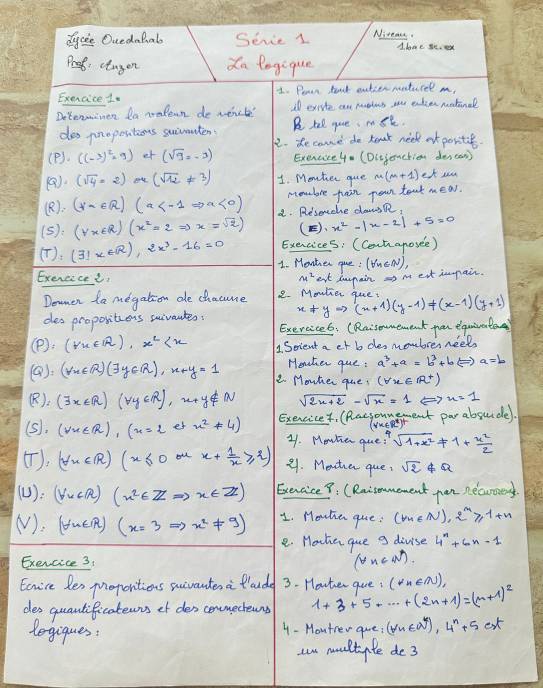 Lycée Ouedahab
Prof:
Série 1
La logique
Niveau:
1bac sc.ex
Exercice 1:
Déterminer la valeur de vérité
des propositions suivantes:
(P): ((-3)²=9) et (√9=-3)
(Q): (√4=2) ou (√12≠3)
(R): (∀a∈R) (a<-1 ⇒ a<0)
(S): (∀x∈R) (x²=2 ⇒ x=√2)
(T): (∃!x∈R), 2x³-16=0
Exercice 2:
Donner la négation de chacune
des propositions suivantes:
(P): (∀x∈R), x²<x
(Q): (∀x∈R)(∃y∈R), x+y=1
(R): (∃x∈R) (∀y∈R), x+y∉N
(S): (∀x∈R), (x=2 et x²≠4)
(T): (∀x∈R) (x≤0 ou x+1/x≥2)
(U): (∀x∈R) (x²∈Z ⇒ x∈Z)
(V): (∀x∈R) (x=3 ⇒ x²≠9)
Exercice 3:
Ecrire les propositions suivantes à l'aide
des quantificateurs et des connecteurs
logiques:
1. Pour tout entier naturel n,
il existe au moins un entier naturel
k tel que: n≤k.
2. Le carré de tout réel est positif.
Exercice 4: (Disjonction des cas)
1. Montrer que n(n+1) est un
nombre pair pour tout n∈N.
2. Résoudre dans R:
(E): x²-|x-2|+5=0
Exercice 5: (Contraposée)
1. Montrer que: (∀n∈N),
n² est impair ⇒ n est impair.
2. Montrer que:
x≠y ⇒ (x+1)(y-1)≠(x-1)(y+1)
Exercice 6: (Raisonnement par équivalence)
1. Soient a et b des nombres réels
Montrer que: a³+a=b³+b ⇔ a=b
2. Montrer que: (∀x∈R⁺)
√2x+2 - √x = 1 ⇔ x=1
Exercice 7: (Raisonnement par absurde).
(∀x∈R*)
1/. Montrer que: √1+x² ≠ 1+x²/2
2/. Montrer que: √2∉Q
Exercice 8: (Raisonnement par récurrence).
1. Montrer que: (∀n∈N), 2ⁿ≥1+n
2. Montrer que 9 divise 4ⁿ+6n-1
(∀n∈N*).
3- Montrer que: (∀n∈N),
1+3+5+...+(2n+1)=(n+1)²
4- Montrer que: (∀n∈N*), 4ⁿ+5 est
un multiple de 3